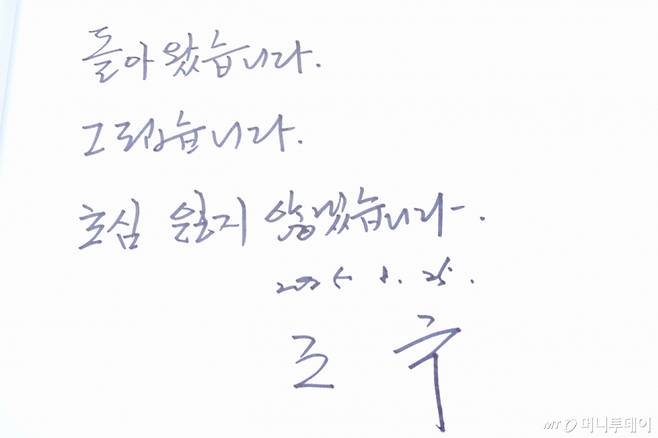 돌아왔습니다.
그리웠습니다.
초심 잃지 않겠습니다.
2025. 8. 25.
조 국
머니투데이